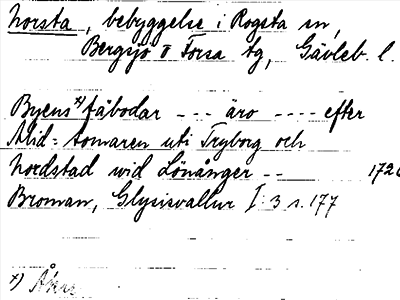 Norsta, bebyggelse i Rogsta sn,
Bergsjö o Forsa tg, Gävleb. l.
Byens x) fäbodar --- äro ---- efter
Mid-somaren uti Tryborg och
Nordstad wid Lönånger -- 1726
Broman, Glysisvallur I:3 s. 177
x)